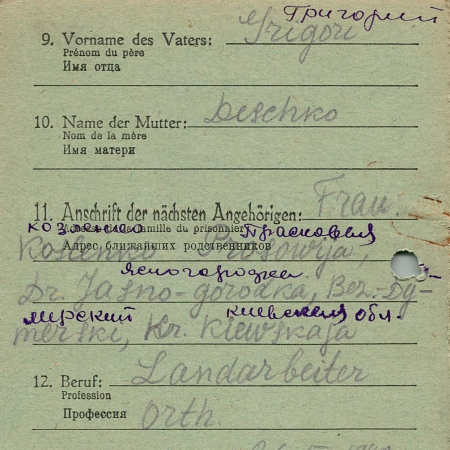 Григорий
9. Vorname des Vaters: Grigori
Prénom du père
Имя отца
10. Name der Mutter: Deschko
Nom de la mère
Имя матери
11. Anschrift der nächsten Angehörigen: Frau
козленко Прасковья
Adresse de la famille du prisonnier
Адрес ближайших родственников
Prosowija,
ясногородка
Dr. Jasno-gorodka, Bez. Dy-
мерский киевская обл.
merski, Kr. Kiewskaja
12. Beruf: Landarbeiter
Profession
Профессия
Orth.